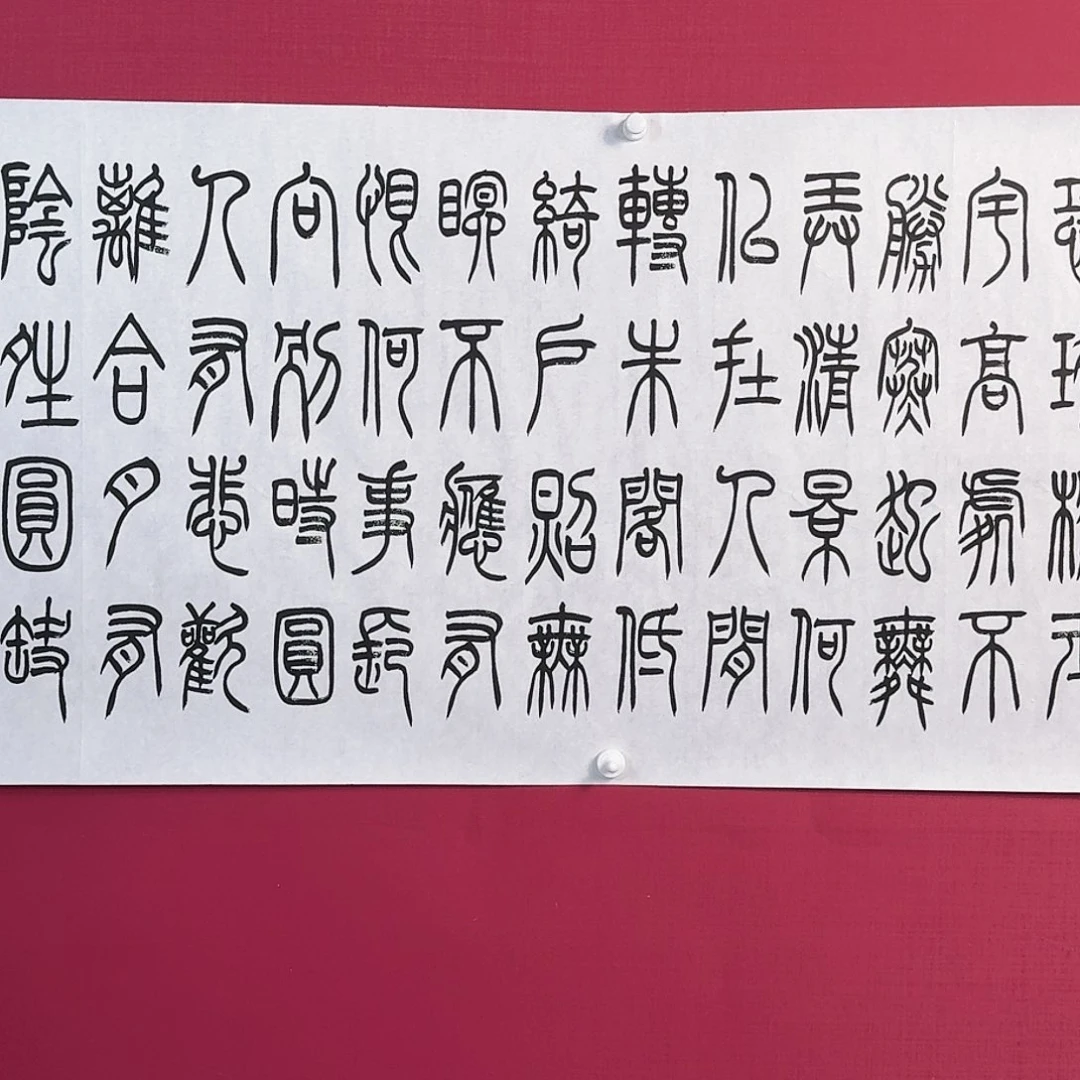 宇高處不
勝寒起舞
弄清景何
似在人間
轉朱閣低
綺戶照無
眠不應有
恨何事長
向別時圓
人有悲歡
離合月有
陰晴圓缺